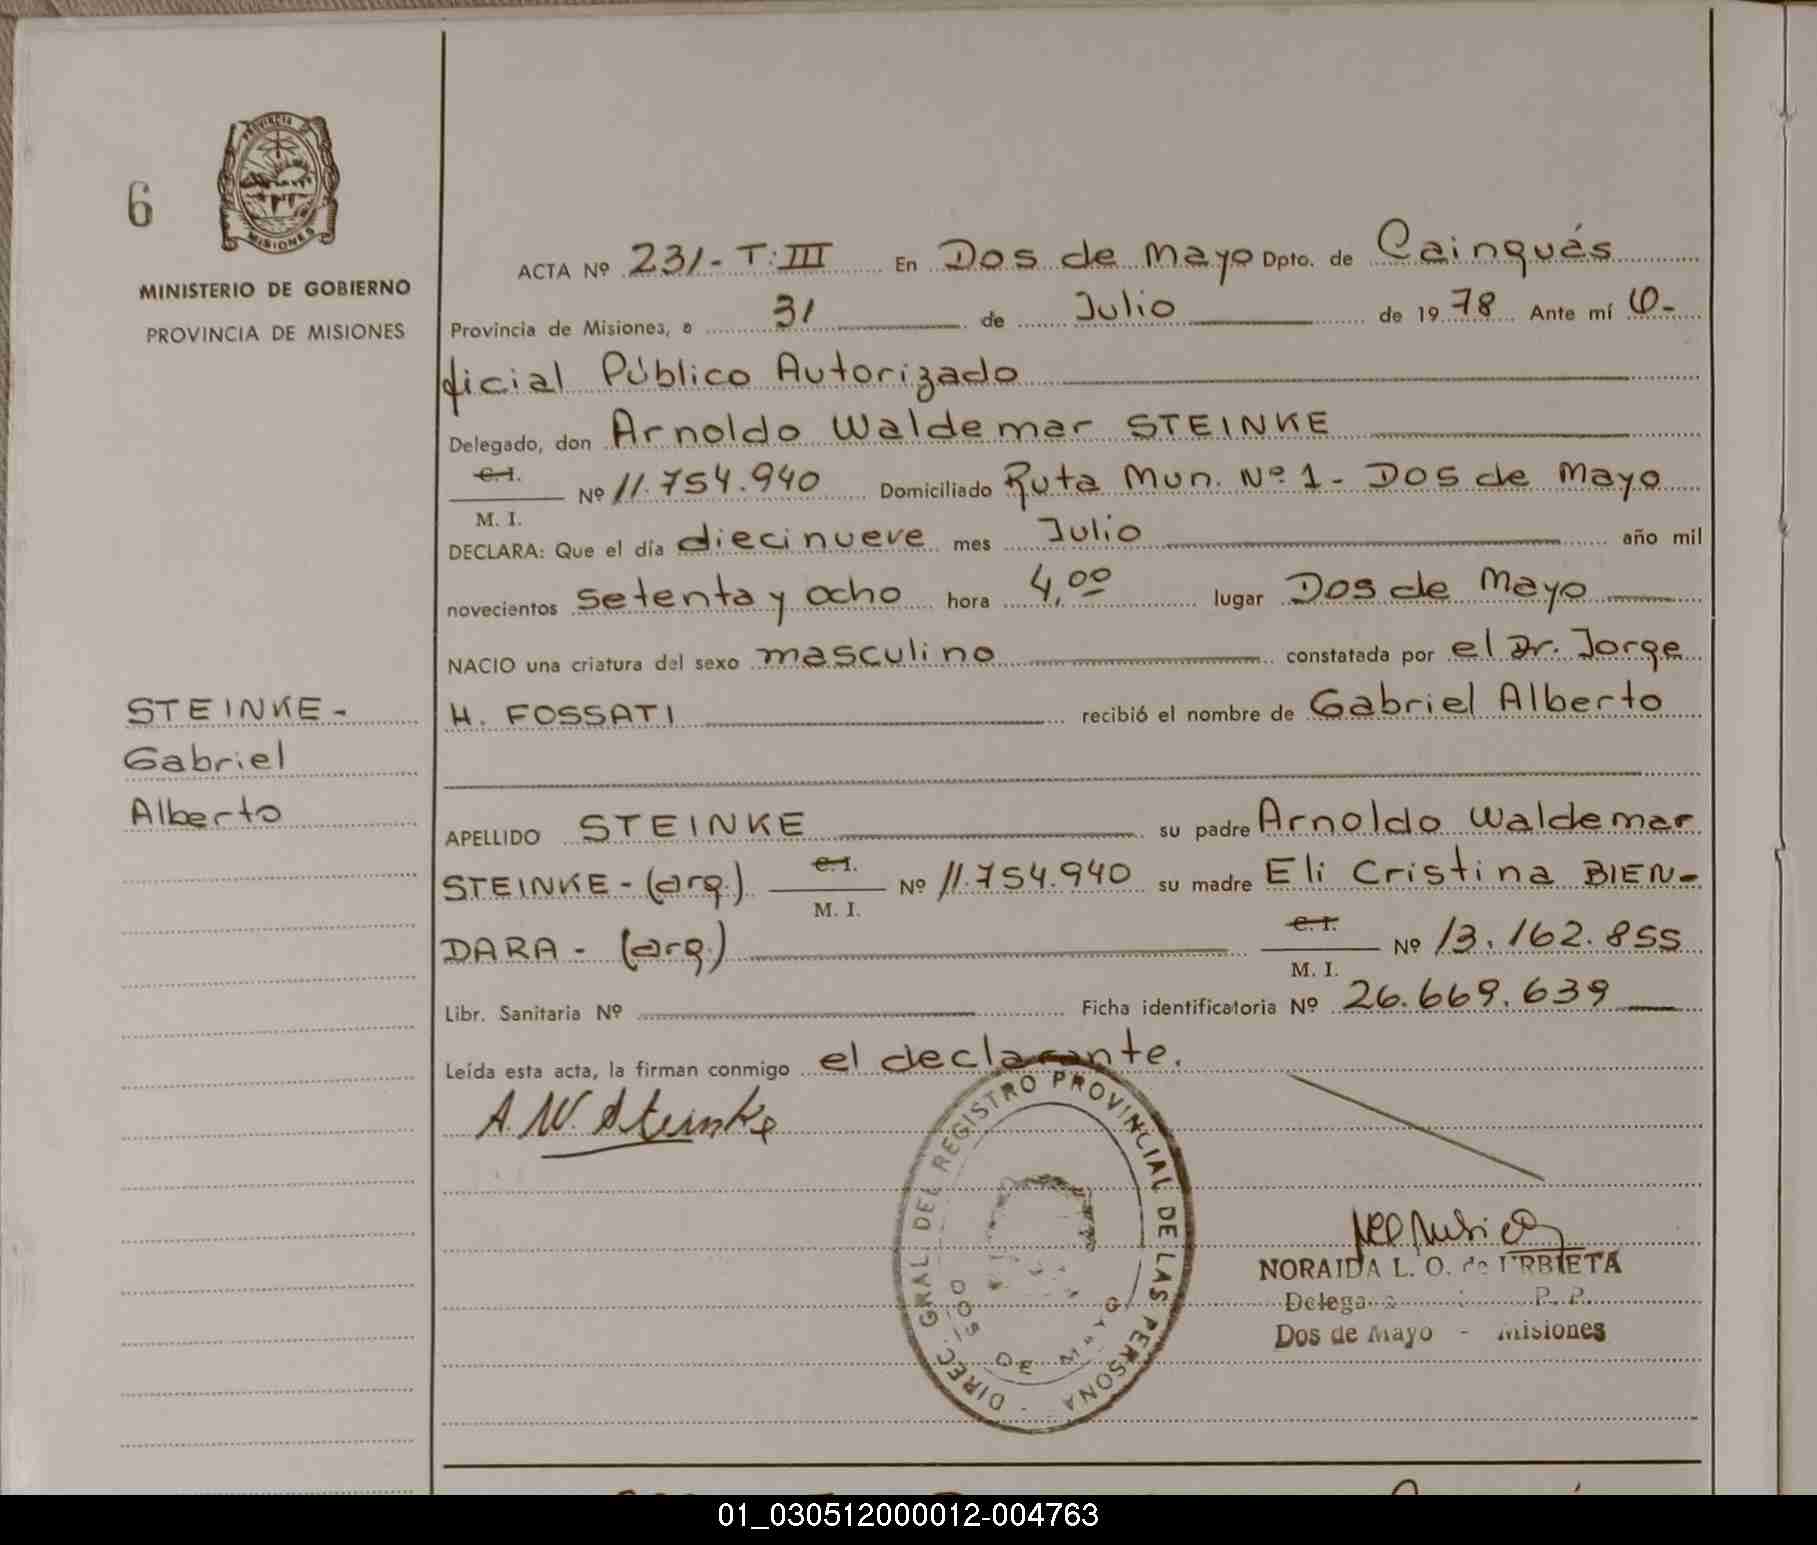 PROVINCIA DE
MISIONES
6
MINISTERIO DE GOBIERNO
PROVINCIA DE MISIONES
ACTA Nº 231-T:III En Dos de Mayo Dpto. de Cainguás
Provincia de Misiones, a 31 de Julio de 1978 Ante mí O-
ficial Público Autorizado
Delegado, don Arnoldo Waldemar STEINKE
C.I.
M. I. Nº 11.754.940 Domiciliado Ruta Mun. Nº 1 - Dos de Mayo
DECLARA: Que el día diecinueve mes Julio año mil
novecientos setenta y ocho hora 4,00 lugar Dos de Mayo
NACIO una criatura del sexo masculino constatada por el Dr. Jorge
H. FOSSATI recibió el nombre de Gabriel Alberto
STEINKE-
Gabriel
Alberto
APELLIDO STEINKE su padre Arnoldo Waldemar
STEINKE - (arg.) C.I. M. I. Nº 11.754.940 su madre Eli Cristina BIEN-
DARA - (arg.) C.I. M. I. Nº 13.162.855
Libr. Sanitaria Nº Ficha identificatoria Nº 26.669.639
Leída esta acta, la firman conmigo el declarante.
A. W. Steinke
DIREC. GRAL DEL REGISTRO PROVINCIAL DE LAS PERSONA
DOS DE MAYO
NORAIDA L. O. de URBIETA
Dos de Mayo - Misiones
01_030512000012-004763